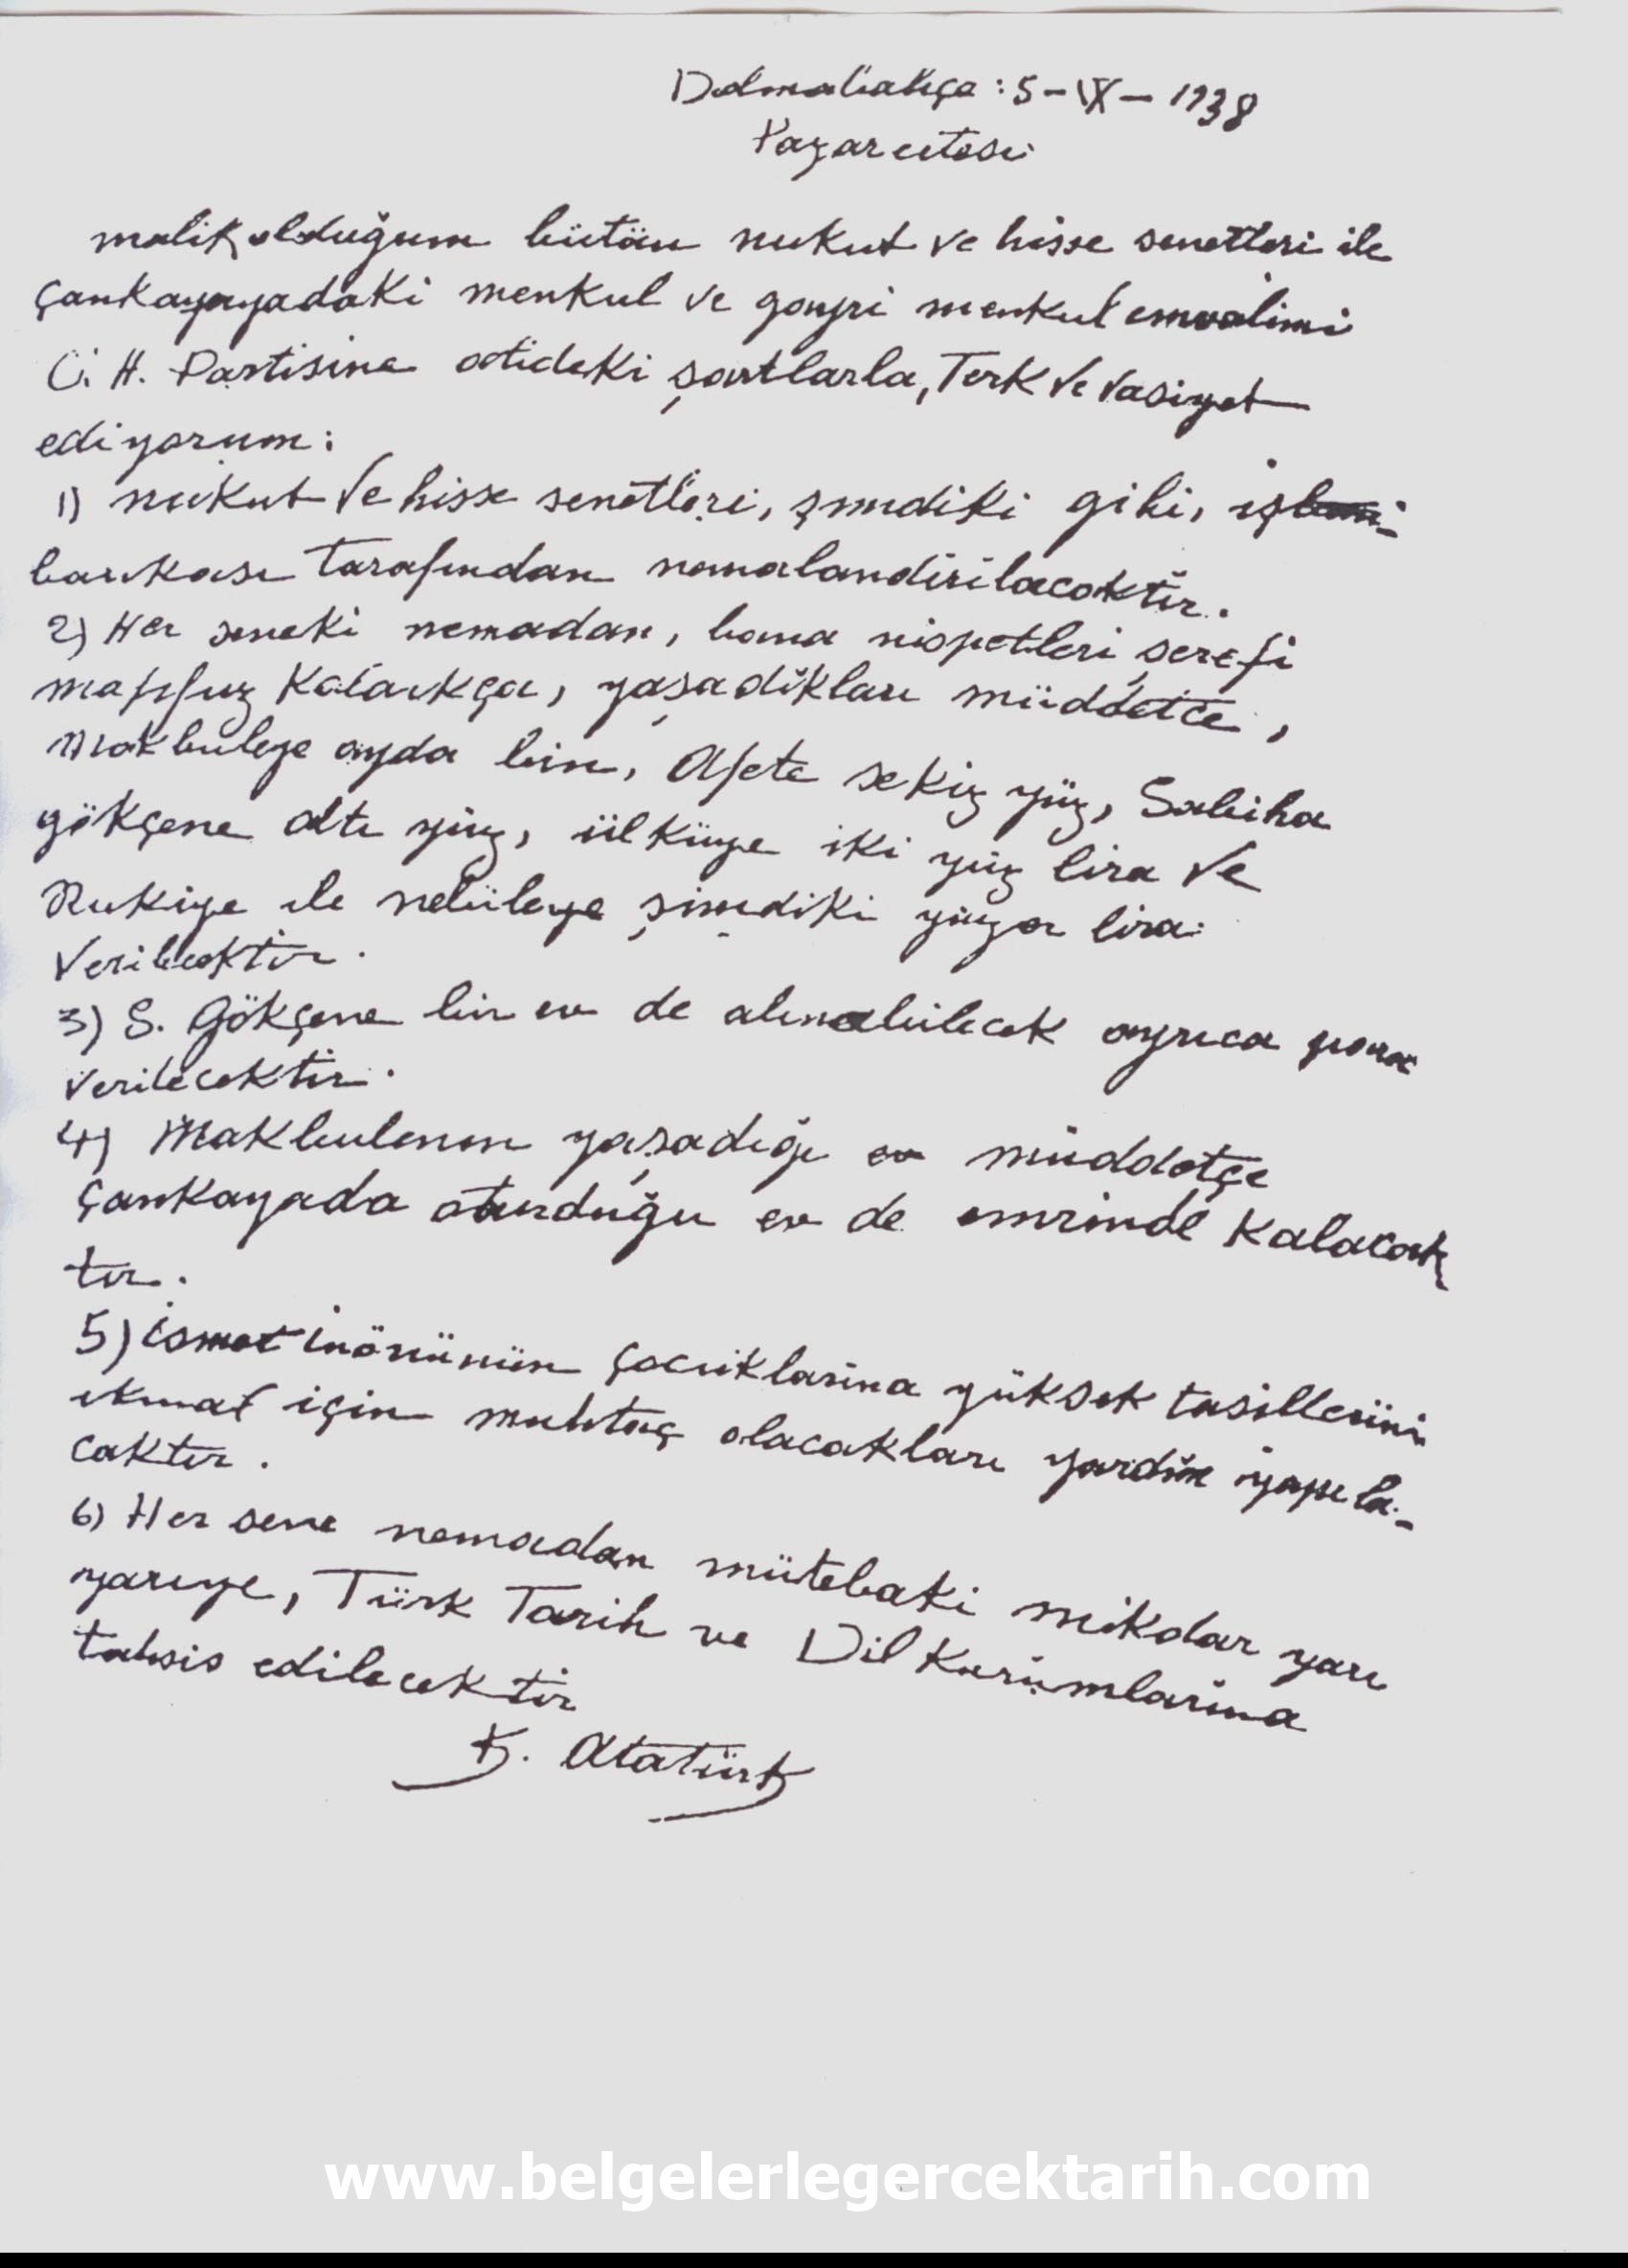 Dolmabahçe : 5-IX-1938
Pazarertesi
malik olduğum bütün nukut ve hisse senetleri ile
Çankayayadaki menkul ve gayri menkul emvalimi
C. H. Partisine atideki şartlarla, Terk ve Vasiyet
ediyorum:
1) nukut Ve hisse senetleri, şimdiki gibi, iş
bankası Tarafından nemalandırılacaktır.
2) Her seneki nemadan, bana nispetleri şerefi
mahfuz Kaldıkça, yaşadıkları müddetce,
Makbuleye ayda bin, Afete sekiz yüz, Sabiha
gökçene altı yüz, ülküye iki yüz lira Ve
Rukiye ile nebileye şimdiki yüzer lira
Verilecektir.
3) S. Gökçene bir ev de alınabilecek ayrıca para
verilecektir.
4) Makbulenin yaşadığı müddetçe
Çankayada oturduğu ev de emrinde Kalacak
tır.
5) ismet inönünün çocuklarına yüksek tasillerini
ikmal için muhtaç olacakları yardım yapıla-
caktır.
6) Her sene nemadan mütebaki mikdar yarı
yarıya, Türk Tarih ve Dil Kurumlarına
tahsis edilecektir
K. Atatürk
www.belgelerlegercektarih.com